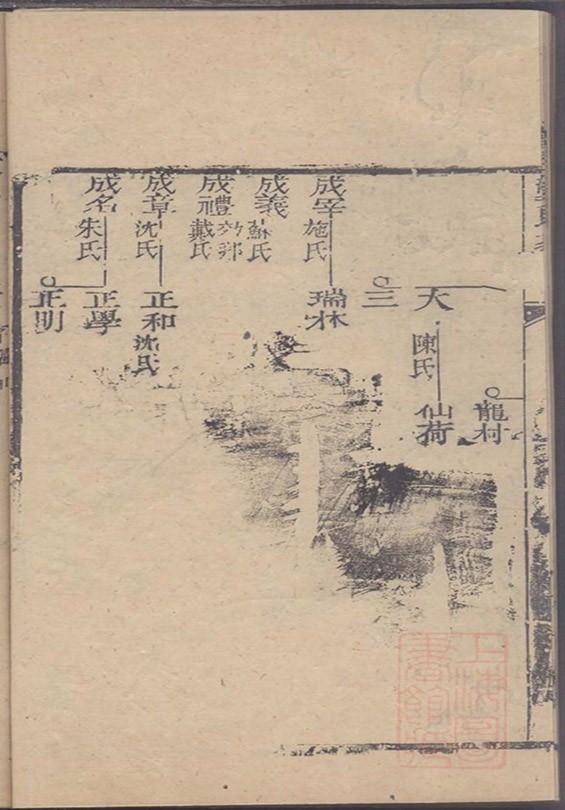 龍村
大
陳氏
仙荷
三
成宰
施氏
瑞林
成義
蘇氏
成禮
戴氏
成章
沈氏
正和
沈氏
成名
朱氏
正學
正明
上海圖書館藏